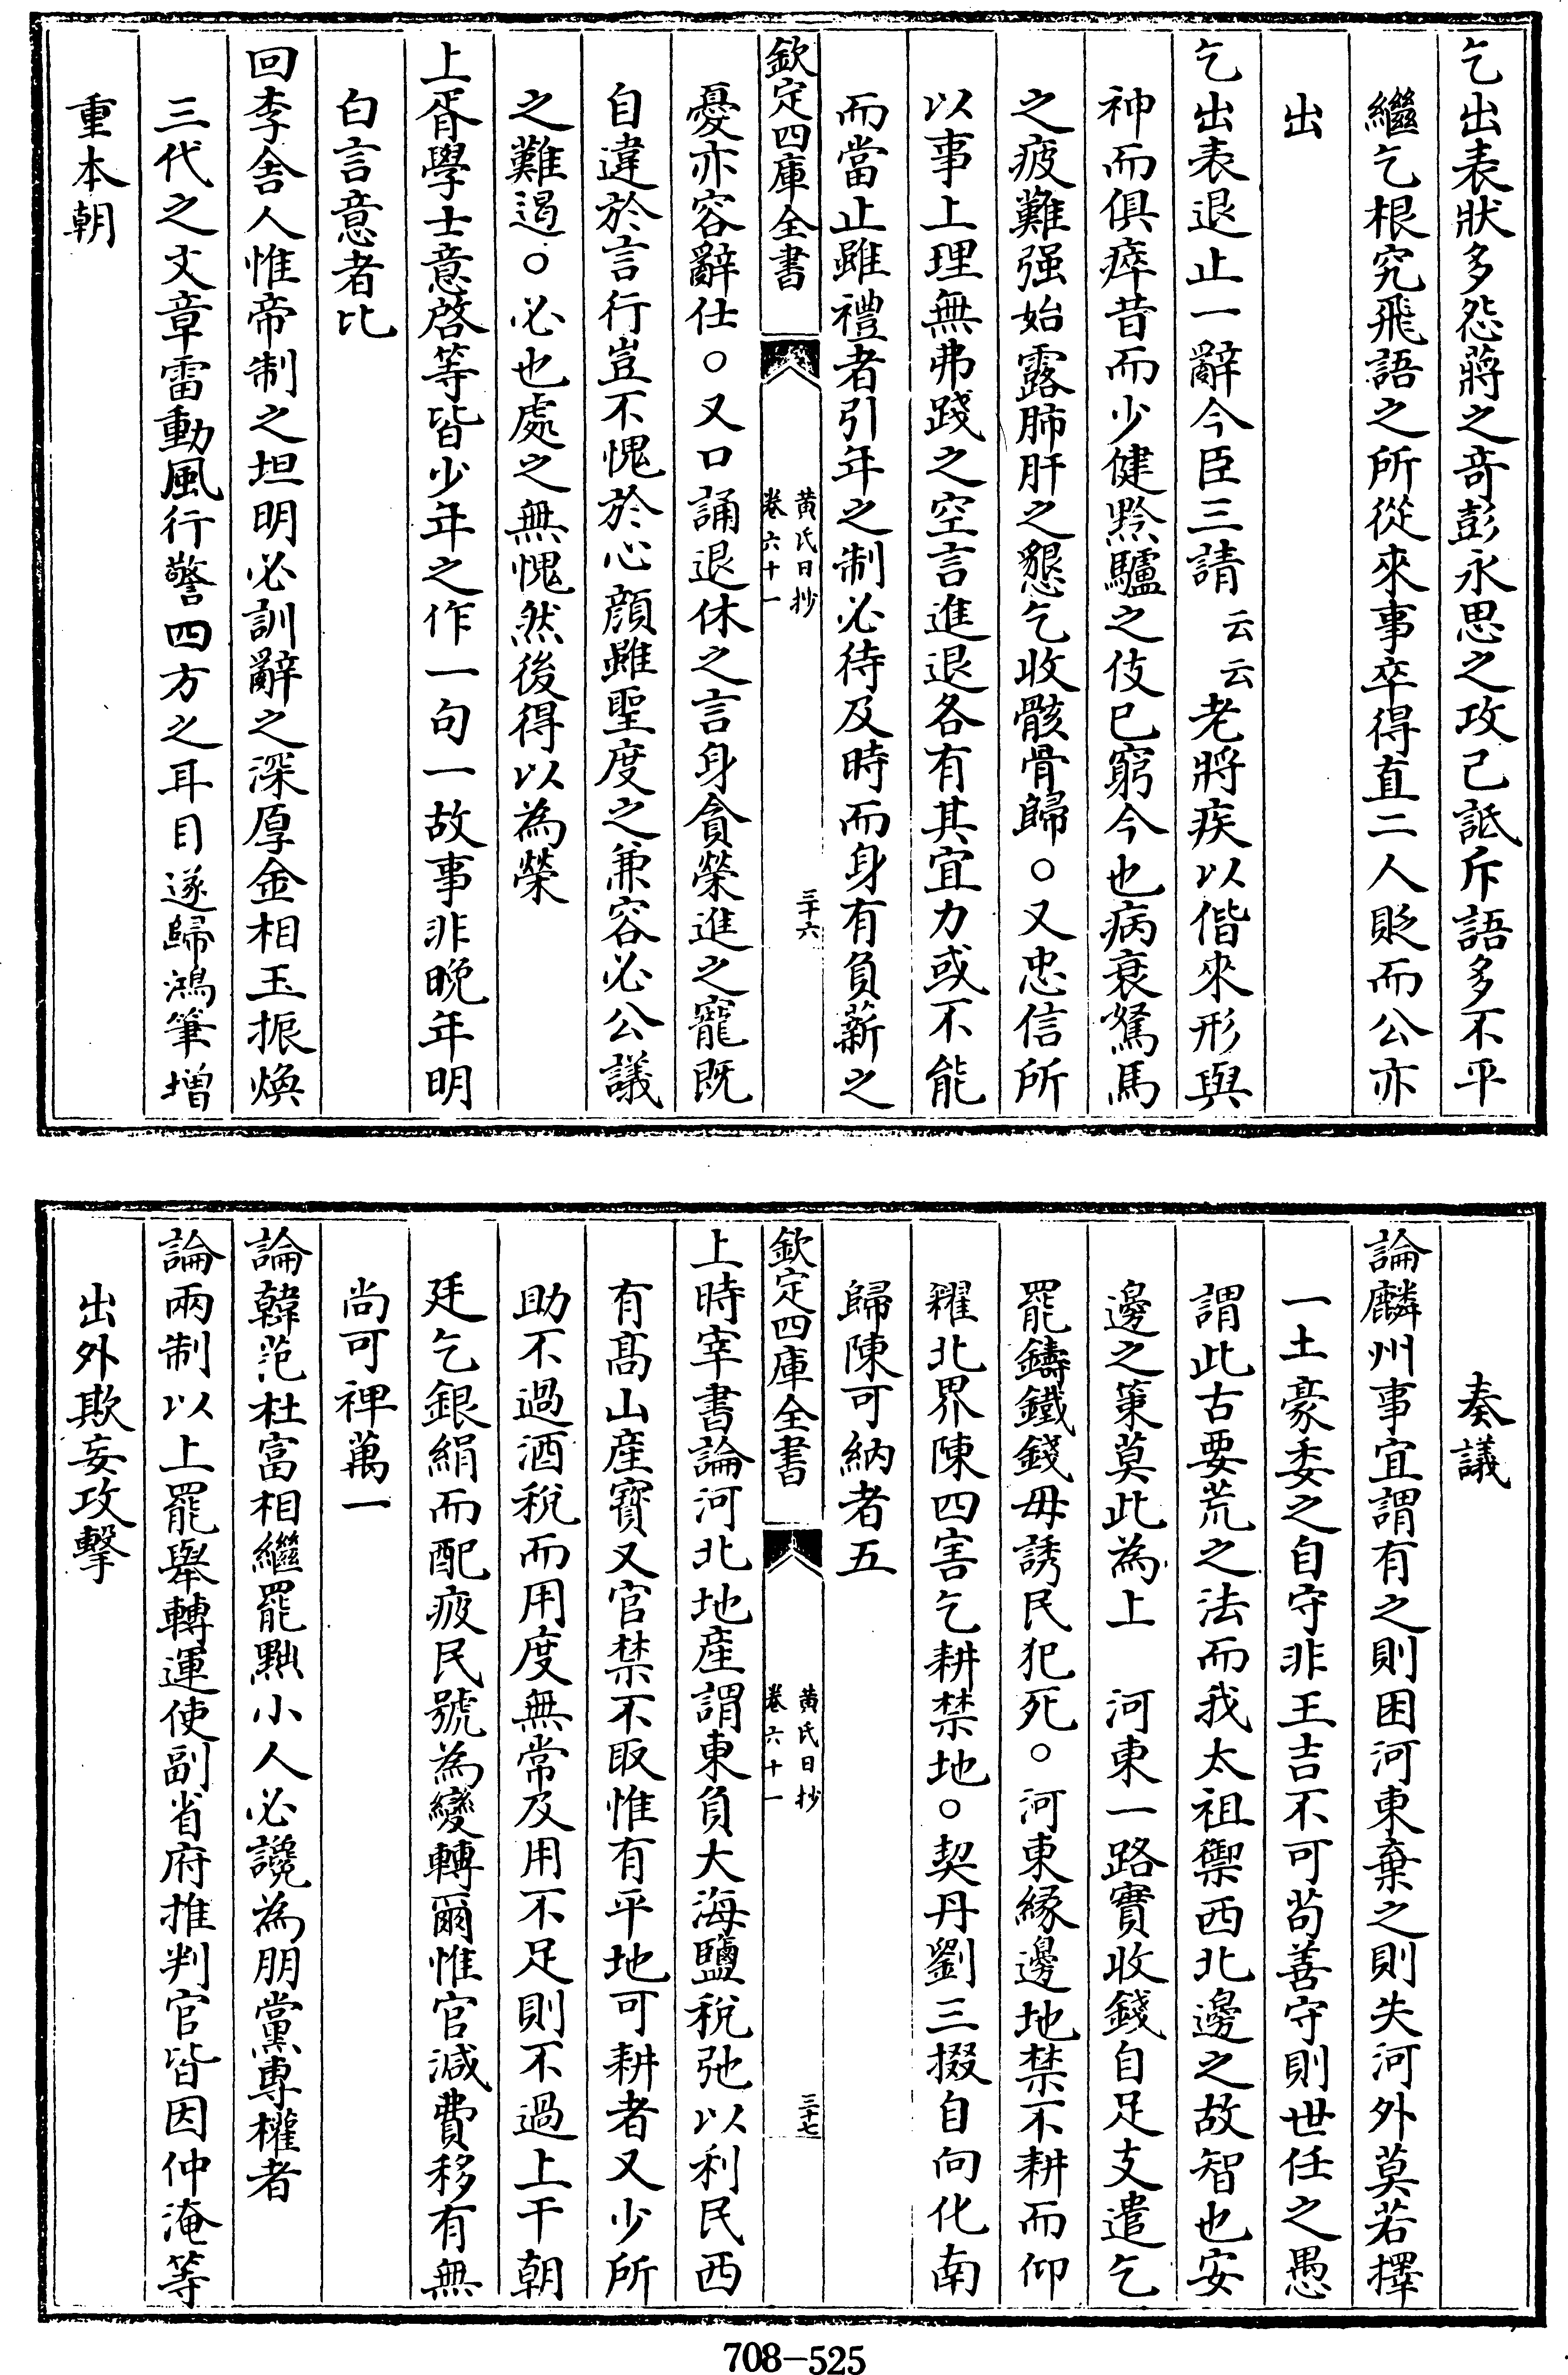 乞出表狀多怨蔣之奇彭永思之攻己詆斥語多不平
繼乞根究飛語之所從來事卒得直二人貶而公亦
出
乞出表退止一辭今臣三請云云老將疾以偕來形與
神而俱瘁昔而少健黔驢之伎已窮今也病衰駑馬
之疲難强始露肺肝之懇乞收骸骨歸○又忠信所
以事上理無弗踐之空言進退各有其宜力或不能
而當止雖禮者引年之制必待及時而身有負薪之
欽定四庫全書
黄氏日抄
卷六十一
三十六
憂亦容辭仕○又口誦退休之言身貪榮進之寵既
自違於言行豈不愧於心顔雖聖度之兼容必公議
之難遏○必也處之無愧然後得以為榮
上胥學士意啓等皆少年之作一句一故事非晩年明
白言意者比
回李舍人惟帝制之坦明必訓辭之深厚金相玉振煥
三代之文章雷動風行警四方之耳目遂歸鴻筆增
重本朝
奏議
論麟州事宜謂有之則困河東棄之則失河外莫若擇
一土豪委之自守非王吉不可苟善守則世任之愚
謂此古要荒之法而我太祖禦西北邊之故智也安
邊之策莫此為上 河東一路實收錢自足支遣乞
罷鑄鐵錢毋誘民犯死○河東緣邊地禁不耕而仰
糴北界陳四害乞耕禁地○契丹劉三掇自向化南
歸陳可納者五
欽定四庫全書
黄氏日抄
卷六十一
三十七
上時宰書論河北地産謂東負大海鹽稅弛以利民西
有髙山産寳又官禁不取惟有平地可耕者又少所
助不過酒稅而用度無常及用不足則不過上干朝
廷乞銀絹而配疲民號為變轉爾惟官減費移有無
尚可裨萬一
論韓范杜富相繼罷黜小人必讒為朋黨專權者
論兩制以上罷舉轉運使副省府推判官皆因仲淹等
出外欺妄攻擊
708-525